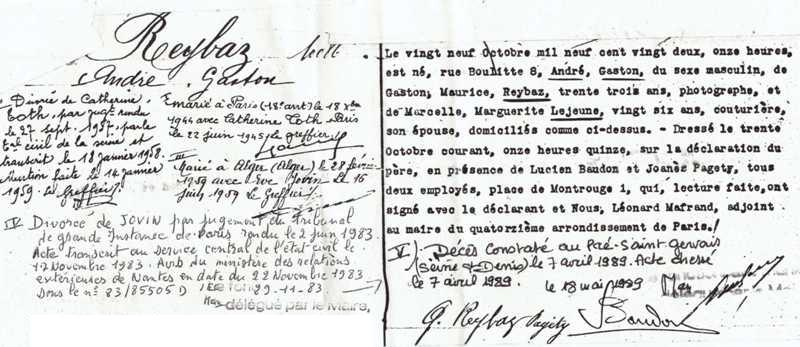 Reybaz
André Gaston
Divorcé de Catherine
Toth, par jugt rendu
le 27 sept. 1957, par le
Tral civil de la Seine et
transcrit le 18 janvier 1958.
Mention faite le 14 janvier
1959. Le Greffier
Marié à Paris (18e arrt) le 18 Xbre
1944 avec Catherine Toth Paris
le 22 juin 1945 Le greffier
III
Marié à Alger (Alger) le 28 février
1959 avec Eve Jovin Le 16
1959 Le Greffier
IV Divorcé de JOVIN par jugement du Tribunal
de grande Instance de Paris rendu le 2 juin 1983.
Acte transcrit au service central de l'état civil le
17 Novembre 1983. Avis du ministère des relations
extérieures de Nantes en date du 22 Novembre 1983
Dons le nº 83/85505 D
29-11-83
délégué par le Maire,
Le vingt neuf Octobre mil neuf cent vingt deux, onze heures,
est né, rue Boulitte 8, André, Gaston, du sexe masculin, de
Gaston, Maurice, Reybaz, trente trois ans, photographe, et
de Marcelle, Marguerite Lejeune, vingt six ans, couturière,
son épouse, domiciliés comme ci-dessus. - Dressé le trente
Octobre courant, onze heures quinze, sur la déclaration du
père, en présence de Lucien Baudon et Joanès Pagety, tous
deux employés, place de Montrouge 1, qui, lecture faite, ont
signé avec le déclarant et Nous, Léonard Mafrand, adjoint
au maire du quatorzième arrondissement de Paris./
V/ Décès constaté au Pré-Saint-Gervais
(Seine St Denis) le 7 avril 1989. Acte dressé
le 7 avril 1989. le 18 mai 1989
G. Reybaz Pagéty Baudon